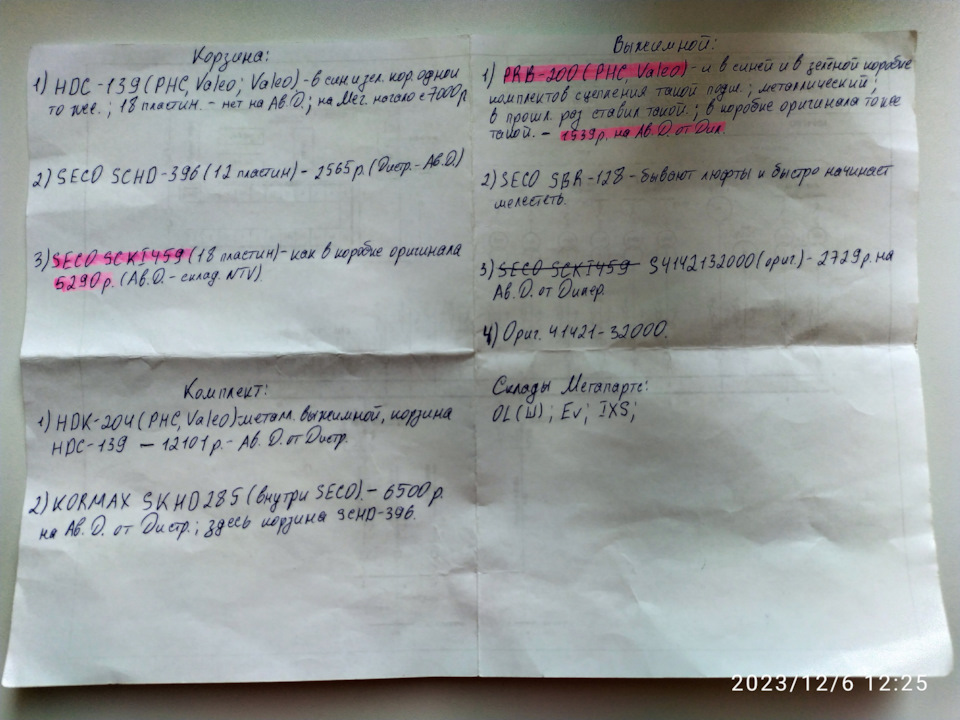 Корзина:
1) HDC-139 (PHC, Valeo; Valeo) - в син. и зел. кор. одно и
то же.; 18 пластин. - нет на Ав.D.; на Мег. начало с 7000р
2) SECO SCHD-396 (12 пластин) - 2565р. (Дистр. - Ав.D.)
3) SECO SCKI459 (18 пластин) - как в коробке оригинала
5290р. (Ав.D. - склад. NTV).
Комплект:
1) HDK-204 (PHC, Valeo) - металл. выжимной, корзина
HDC-139 — 12101р. - Ав. D. от Дистр.
2) KORMAX SKHD285 (внутри SECO). - 6500р.
на Ав. D. от Дистр.; здесь корзина SCHD-396.
Выжимной:
1) PRB-200 (PHC, Valeo) - и в синей и в зелной коробке
комплектов сцепления такой подш.; металлический;
в прошл. раз ставил такой.; в коробке оригинала тоже
такой. - 1539р. на Ав. D. от Дил.
2) SECO SBR-128 - бывают люфты и быстро начинает
шелестеть.
3) SECO SCKI459 S4142132000 (ориг.) - 2729р. на
Ав. D. от Дилер.
4) Ориг. 41421-32000.
Склады Мегапартс:
OL(Ш); Ev; IXS;
2023/12/6 12:25